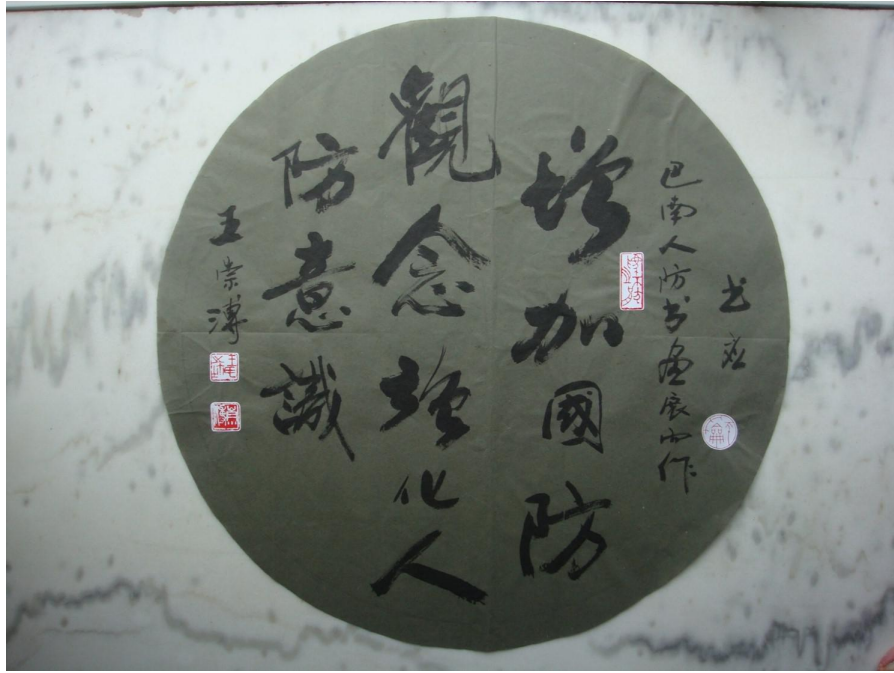 书应
巴南人防书画展而作
增加國防
觀念强化人
防意識
王崇溥